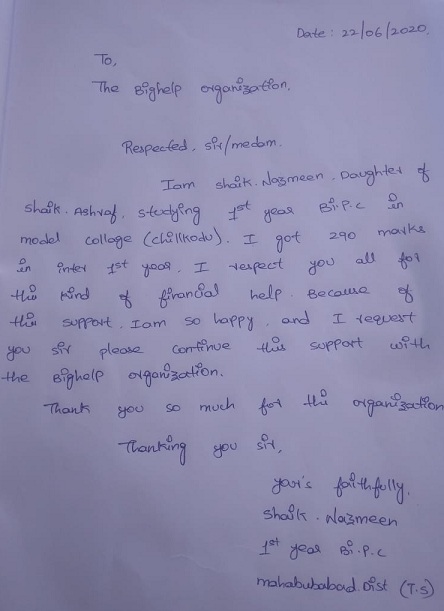 Date: 22/06/2020.
To,
The Bighelp organization.
Respected, sir/medam.
Iam shaik.Nazmeen. Daughter of
shaik.Ashraf. studying 1st year Bi.P.C in
model collage (chillkodu). I got 290 marks
in inter 1st year. I respect you all for
this kind of financial help. Because of
this support. Iam so happy. and I request
you sir please continue this support with
the Bighelp organization.
Thank you so much for the organization
Thanking you sir,
your's faithfully,
shaik.Nazmeen
1st year Bi.P.C
mahabubabad.Dist (T.S)